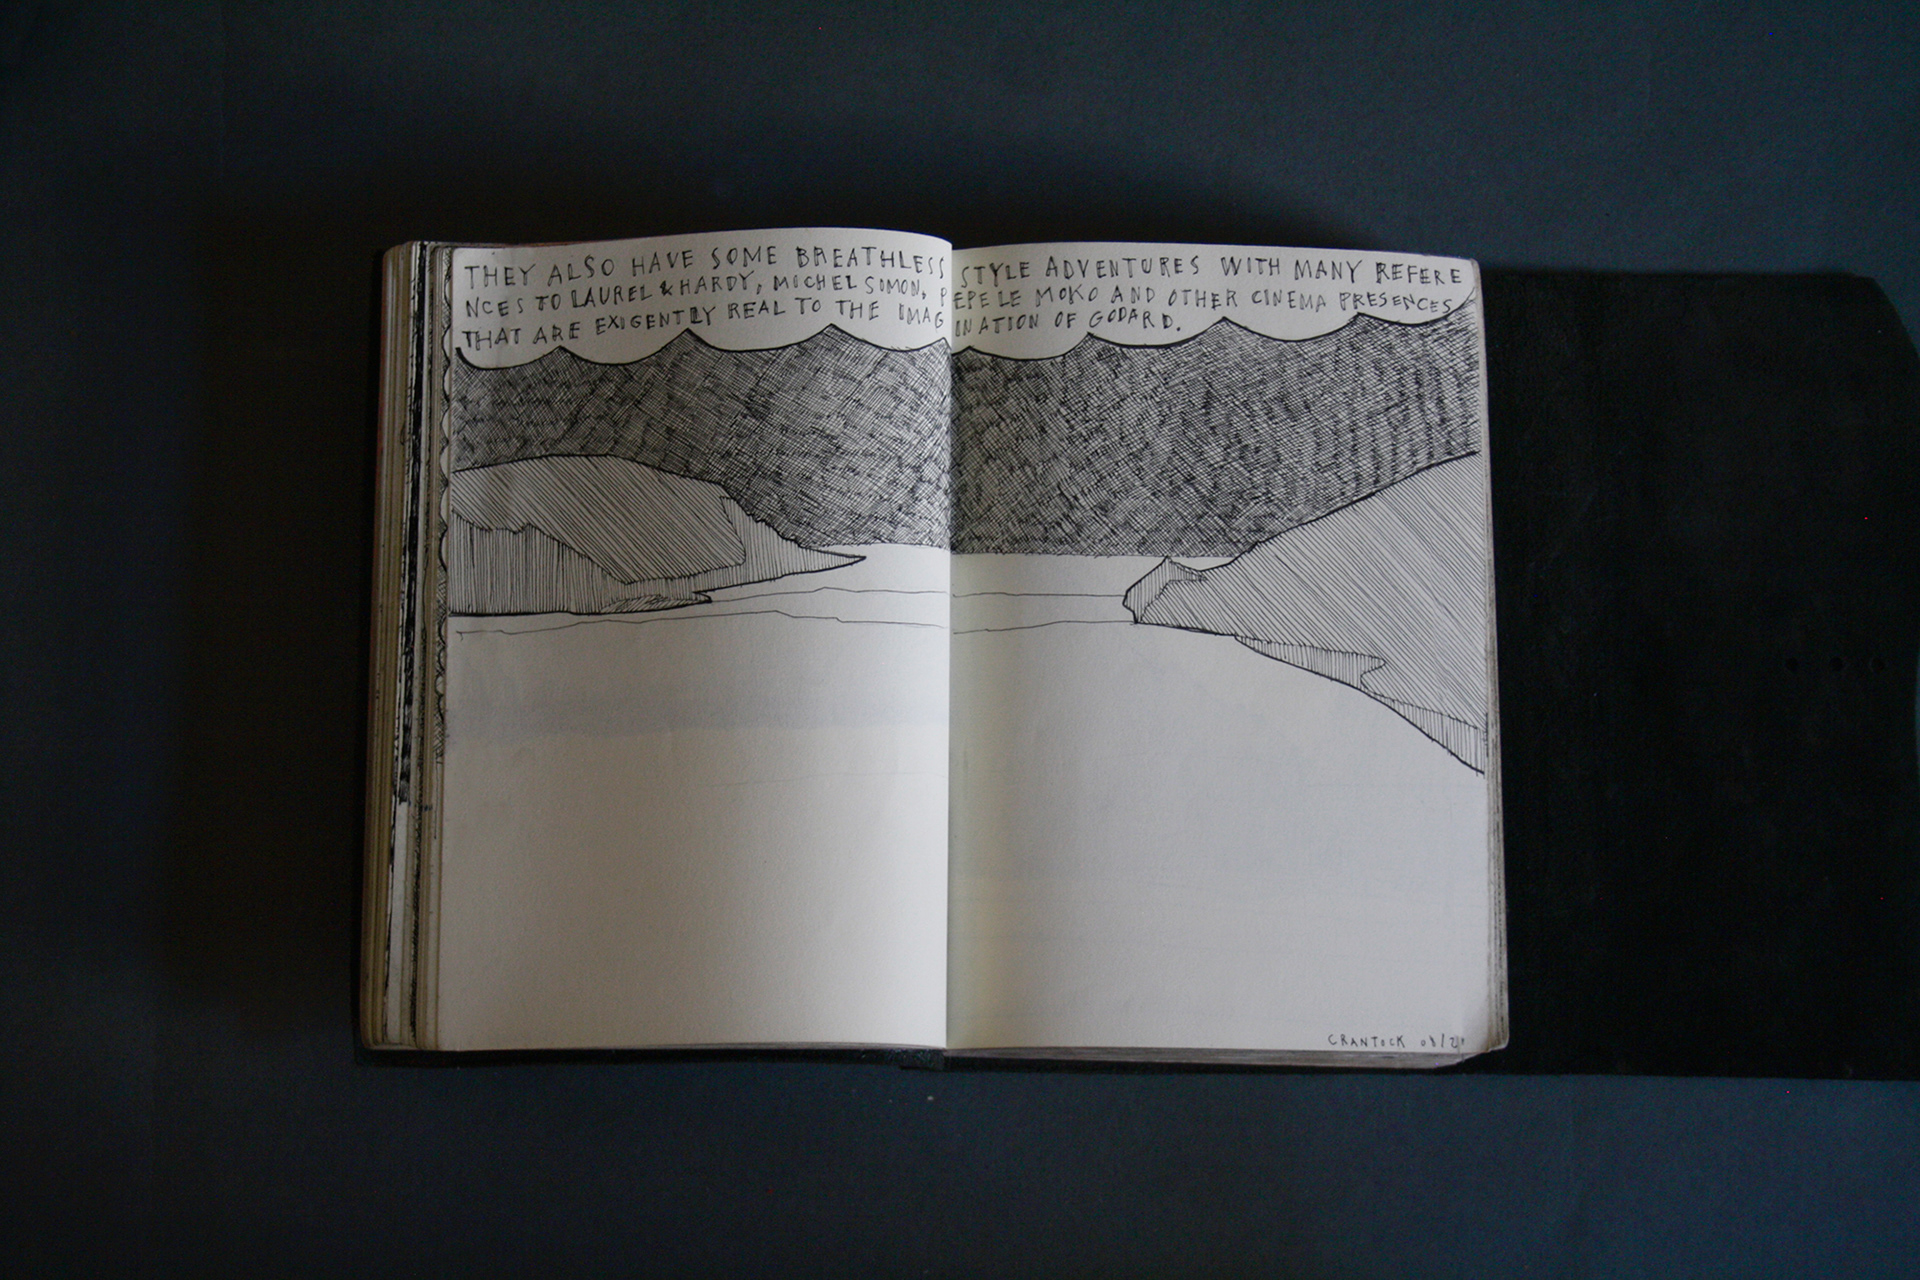 THEY ALSO HAVE SOME BREATHLESS STYLE ADVENTURES WITH MANY REFERE
NCES TO LAUREL & HARDY, MICHEL SIMON, PEPE LE MOKO AND OTHER CINEMA PRESENCES
THAT ARE EXIGENTLY REAL TO THE IMAGINATION OF GODARD.
CRANTOCK